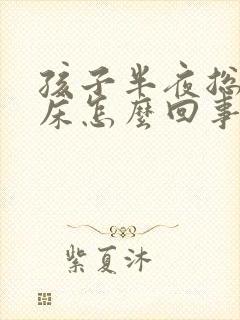 孩子半夜总
床怎麽回事
紫夏沐